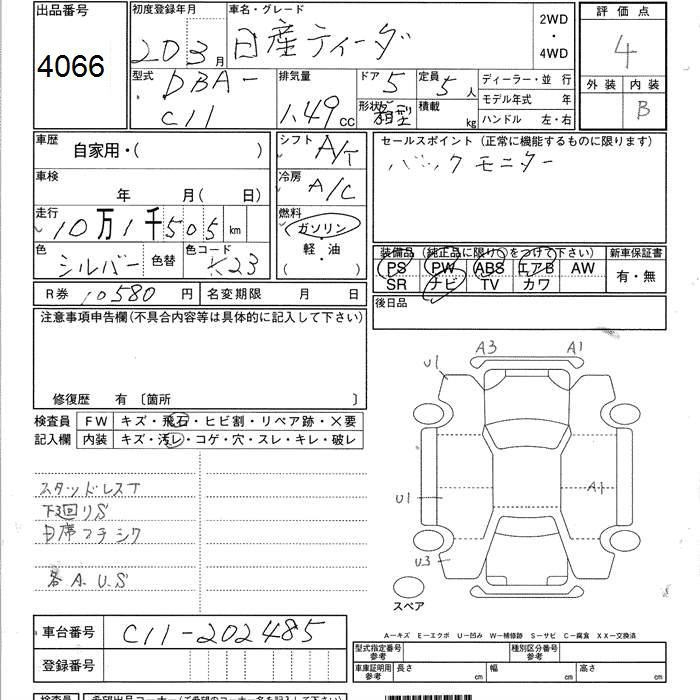 出品番号 初度登録年月 車名・グレード 2WD ・ 4WD 評価点
4066 20 3月 日産ティーダ 4
型式 DBA-C11 排気量 1.49 cc ドア 5 定員 5人 ディーラー・並 行
形状 箱型 積載 kg モデル年式 年
ハンドル 左・右
外装 内装 B
車歴 自家用・( ) シフト A/T
セールスポイント (正常に機能するものに限ります)
バックモニター
車検 年 月( 日) 冷房 A/C
走行 10万1千505km 燃料 ガソリン 軽・油 ( )
色 シルバー 色替 色コード K23
装備品 (純正品に限り○をつけて下さい) 新車保証書
PS PW ABS エアB AW 有・無
SR ナビ TV カワ
R券 10580 円 名変期限 月 日
後日品
注意事項申告欄(不具合内容等は具体的に記入して下さい)
修復歴 有 〔箇所 〕
検査員 FW キズ・飛石・ヒビ割・リペア跡・×要
記入欄 内装 キズ・汚レ・コゲ・穴・スレ・キレ・破レ
A3 A1
U1
U1 A1
U3
スペア
スタッドレスT
下3回りS
各A.U.S
A-キズ E-エクボ U-凹み W-補修跡 S-サビ C-腐食 XX-交換済
車台番号 C11-202485
登録番号
型式指定番号 参考 種別区分番号 参考
車庫証明用 参考 長さ cm 幅 cm 高さ cm
検査員 希望出品コーナー(ご希望のコーナー名を記入下さい)